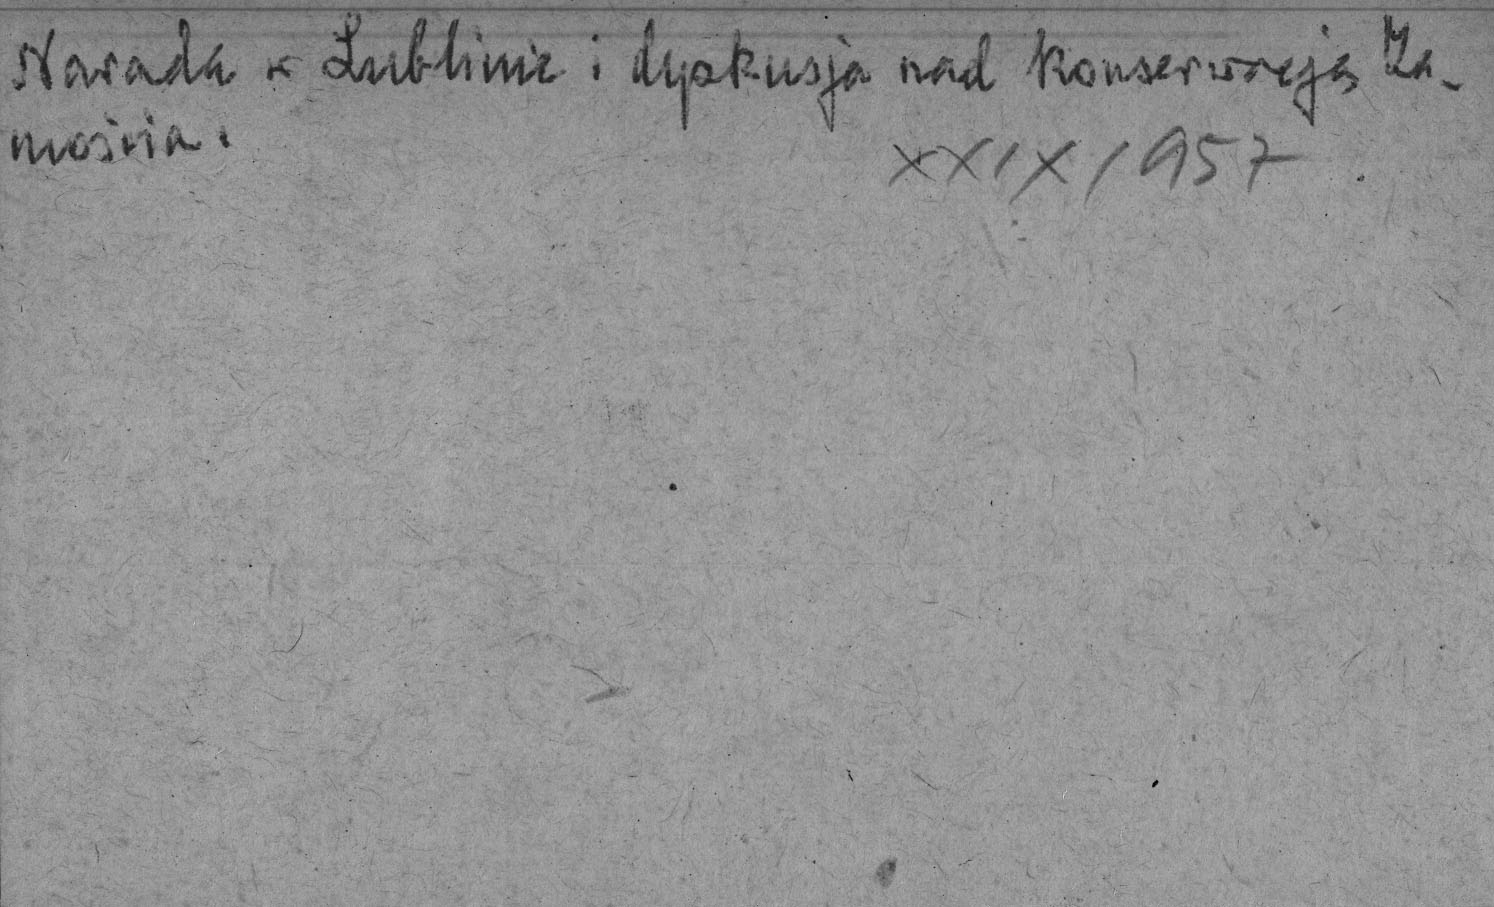 Narada w Lublinie i dyskusja nad konserwacją Za-
mościa.
XXIX/957